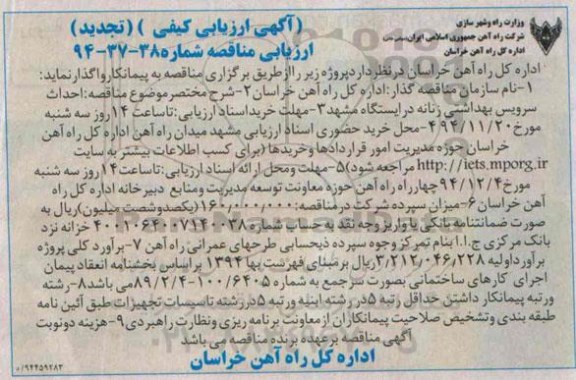 وزارت راه وشهر سازی
شرکت راه آهن جمهوری اسلامی ایران(سهامی خاص)
اداره کل راه آهن خراسان
(آگهی ارزیابی کیفی ) (تجدید)
ارزیابی مناقصه شماره۳۸-۳۷-۹۴
اداره کل راه آهن خراسان درنظرداردپروژه زیر راازطریق برگزاری مناقصه به پیمانکارواگذارنماید:
۱-نام سازمان مناقصه گذار:اداره کل راه آهن خراسان۲-شرح مختصرموضوع مناقصه:احداث
سرویس بهداشتی زنانه درایستگاه مشهد۳-مهلت خریداسنادارزیابی:تاساعت ۱۴روز سه شنبه
مورخ۹۴/۱۱/۲۰ ۴-محل خرید حضوری اسناد ارزیابی مشهد میدان راه آهن اداره کل راه آهن
خراسان حوزه مدیریت امور قراردادها وخریدها (برای کسب اطلاعات بیشتر به سایت
http://iets.mporg.ir مراجعه شود)۵-مهلت ومحل ارائه اسناد ارزیابی:تاساعت۱۴روز سه شنبه
مورخ۹۴/۱۲/۴چهارراه راه آهن حوزه معاونت توسعه مدیریت ومنابع دبیرخانه اداره کل راه
آهن خراسان۶-میزان سپرده شرکت درمناقصه:۱۶۰/۰۰۰/۰۰۰(یکصدوشصت میلیون)ریال به
صورت ضمانتنامه بانکی یا واریز وجه نقد به حساب شماره ۴۰۰۱۰۶۴۰۰۷۱۴۰۰۳۸ خزانه نزد
بانک مرکزی ج.ا.ا بنام تمرکز وجوه سپرده ذیحسابی طرحهای عمرانی راه آهن ۷-برآورد کلی پروژه
برآورداولیه ۳/۲۱۲/۰۴۶/۲۲۸ریال برمبنای فهرست بها ۱۳۹۴ براساس بخشنامه انعقاد پیمان
اجرای کارهای ساختمانی بصورت سرجمع به شماره ۱۰۰/۶۴۰۵-۸۹/۲/۴می باشد۸-رشته
ورتبه پیمانکار داشتن حداقل رتبه ۵در رشته ابنیه ورتبه ۵در رشته تاسیسات تجهیزات طبق آئین نامه
طبقه بندی وتشخیص صلاحیت پیمانکاران ازمعاونت برنامه ریزی ونظارت راهبردی۹-هزینه دونوبت
آگهی مناقصه برعهده برنده مناقصه می باشد
اداره کل راه آهن خراسان
۹۴۴۵۹۲۸۳/ه